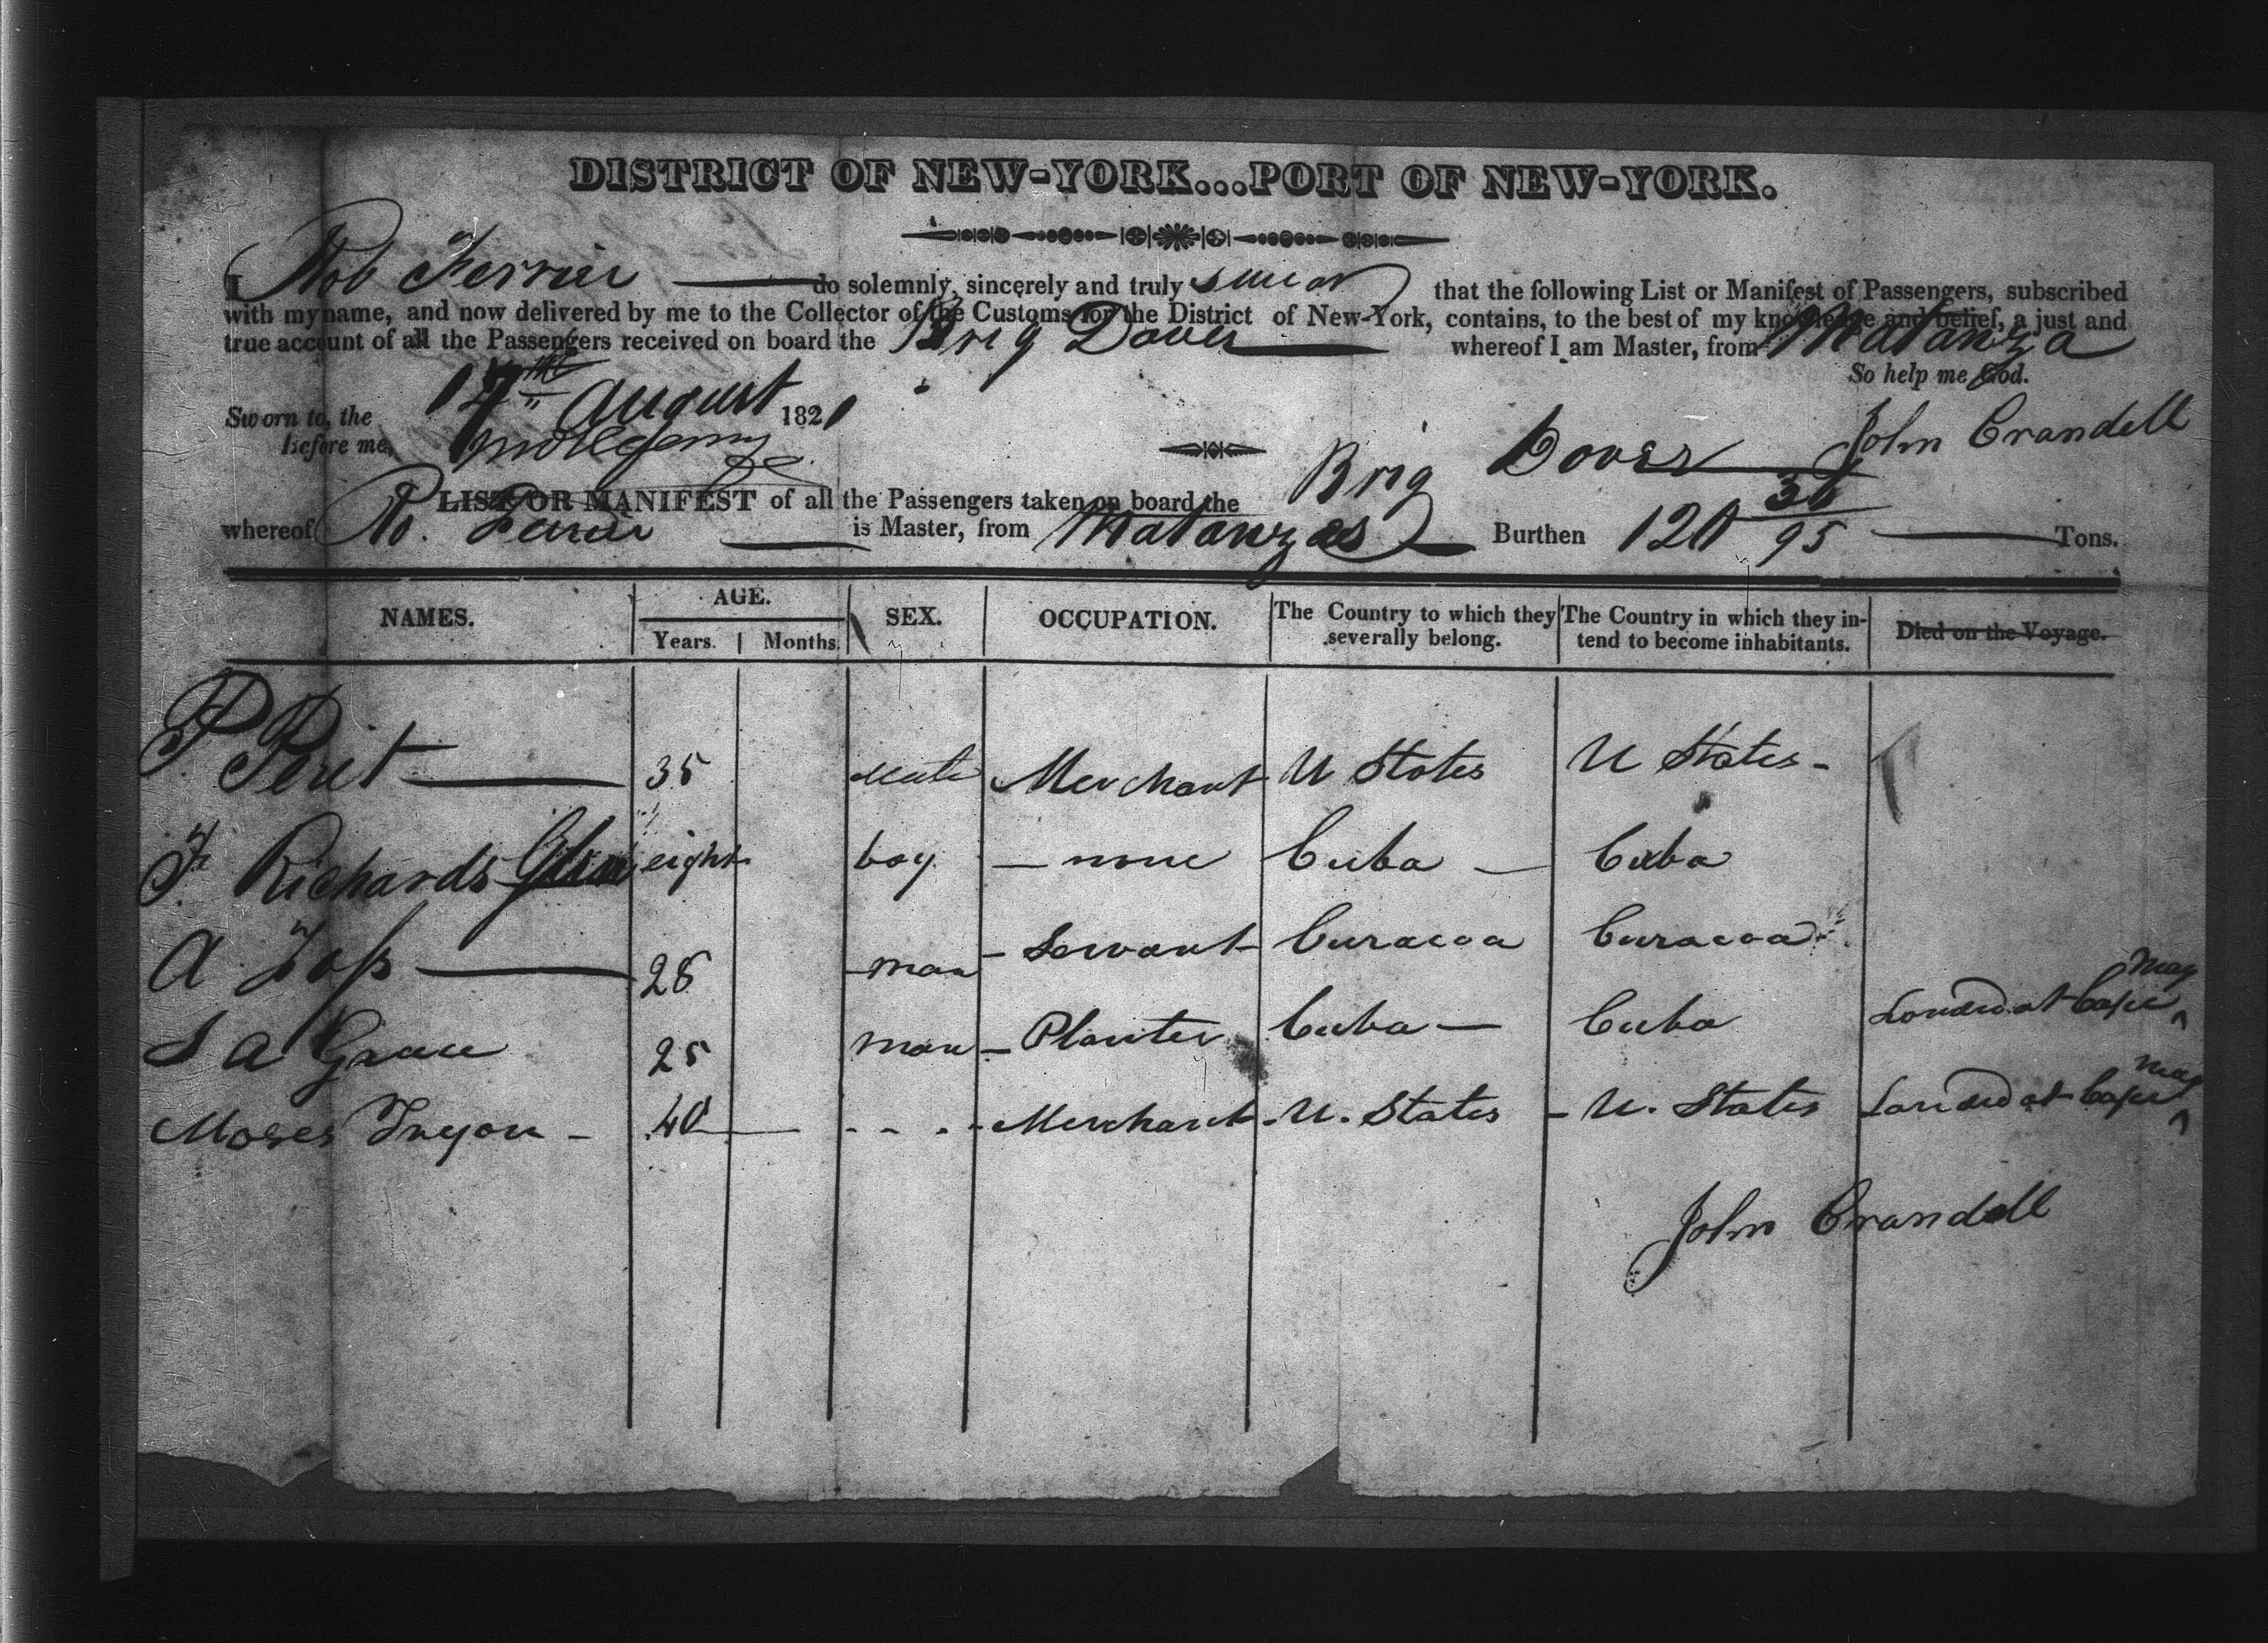 DISTRICT OF NEW-YORK...PORT OF NEW-YORK.
I Rob Ferrier do solemnly, sincerely and truly swear that the following List or Manifest of Passengers, subscribed
with my name, and now delivered by me to the Collector of the Customs for the District of New-York, contains, to the best of my knowledge and belief, a just and
true account of all the Passengers received on board the Brig Dover whereof I am Master, from Matanza
So help me God.
Sworn to, the 17th August 1821
Before me,
John Crandell
LIST OR MANIFEST of all the Passengers taken on board the Brig Dover
whereof R. is Master, from Matanzas Burthen 120 36/95 Tons.
NAMES. AGE. SEX. OCCUPATION. The Country to which they severally belong. The Country in which they intend to become inhabitants. Died on the Voyage.
Years. Months.
P Perit 35 male Merchant U States U States
Richards eight boy none Cuba Cuba
A 28 man Servant Curacoa Curacoa
S A Grau 25 man Planter Cuba Cuba Landed at Cape May
Moses Tryon 40 Merchant U. States U. States Landed at Cape May
John Crandell